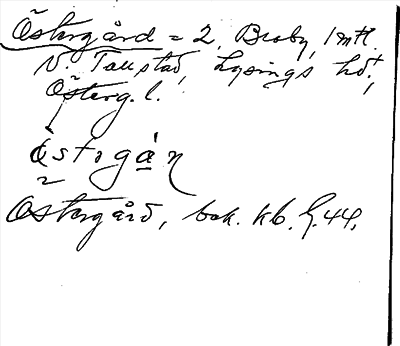 Östergård = 2, Broby, 1 mtl.
V. Tollstad, Lysings hd,
Österg. l.
östərgá̱ṇ
Östergård, bok. kb. G. 44,